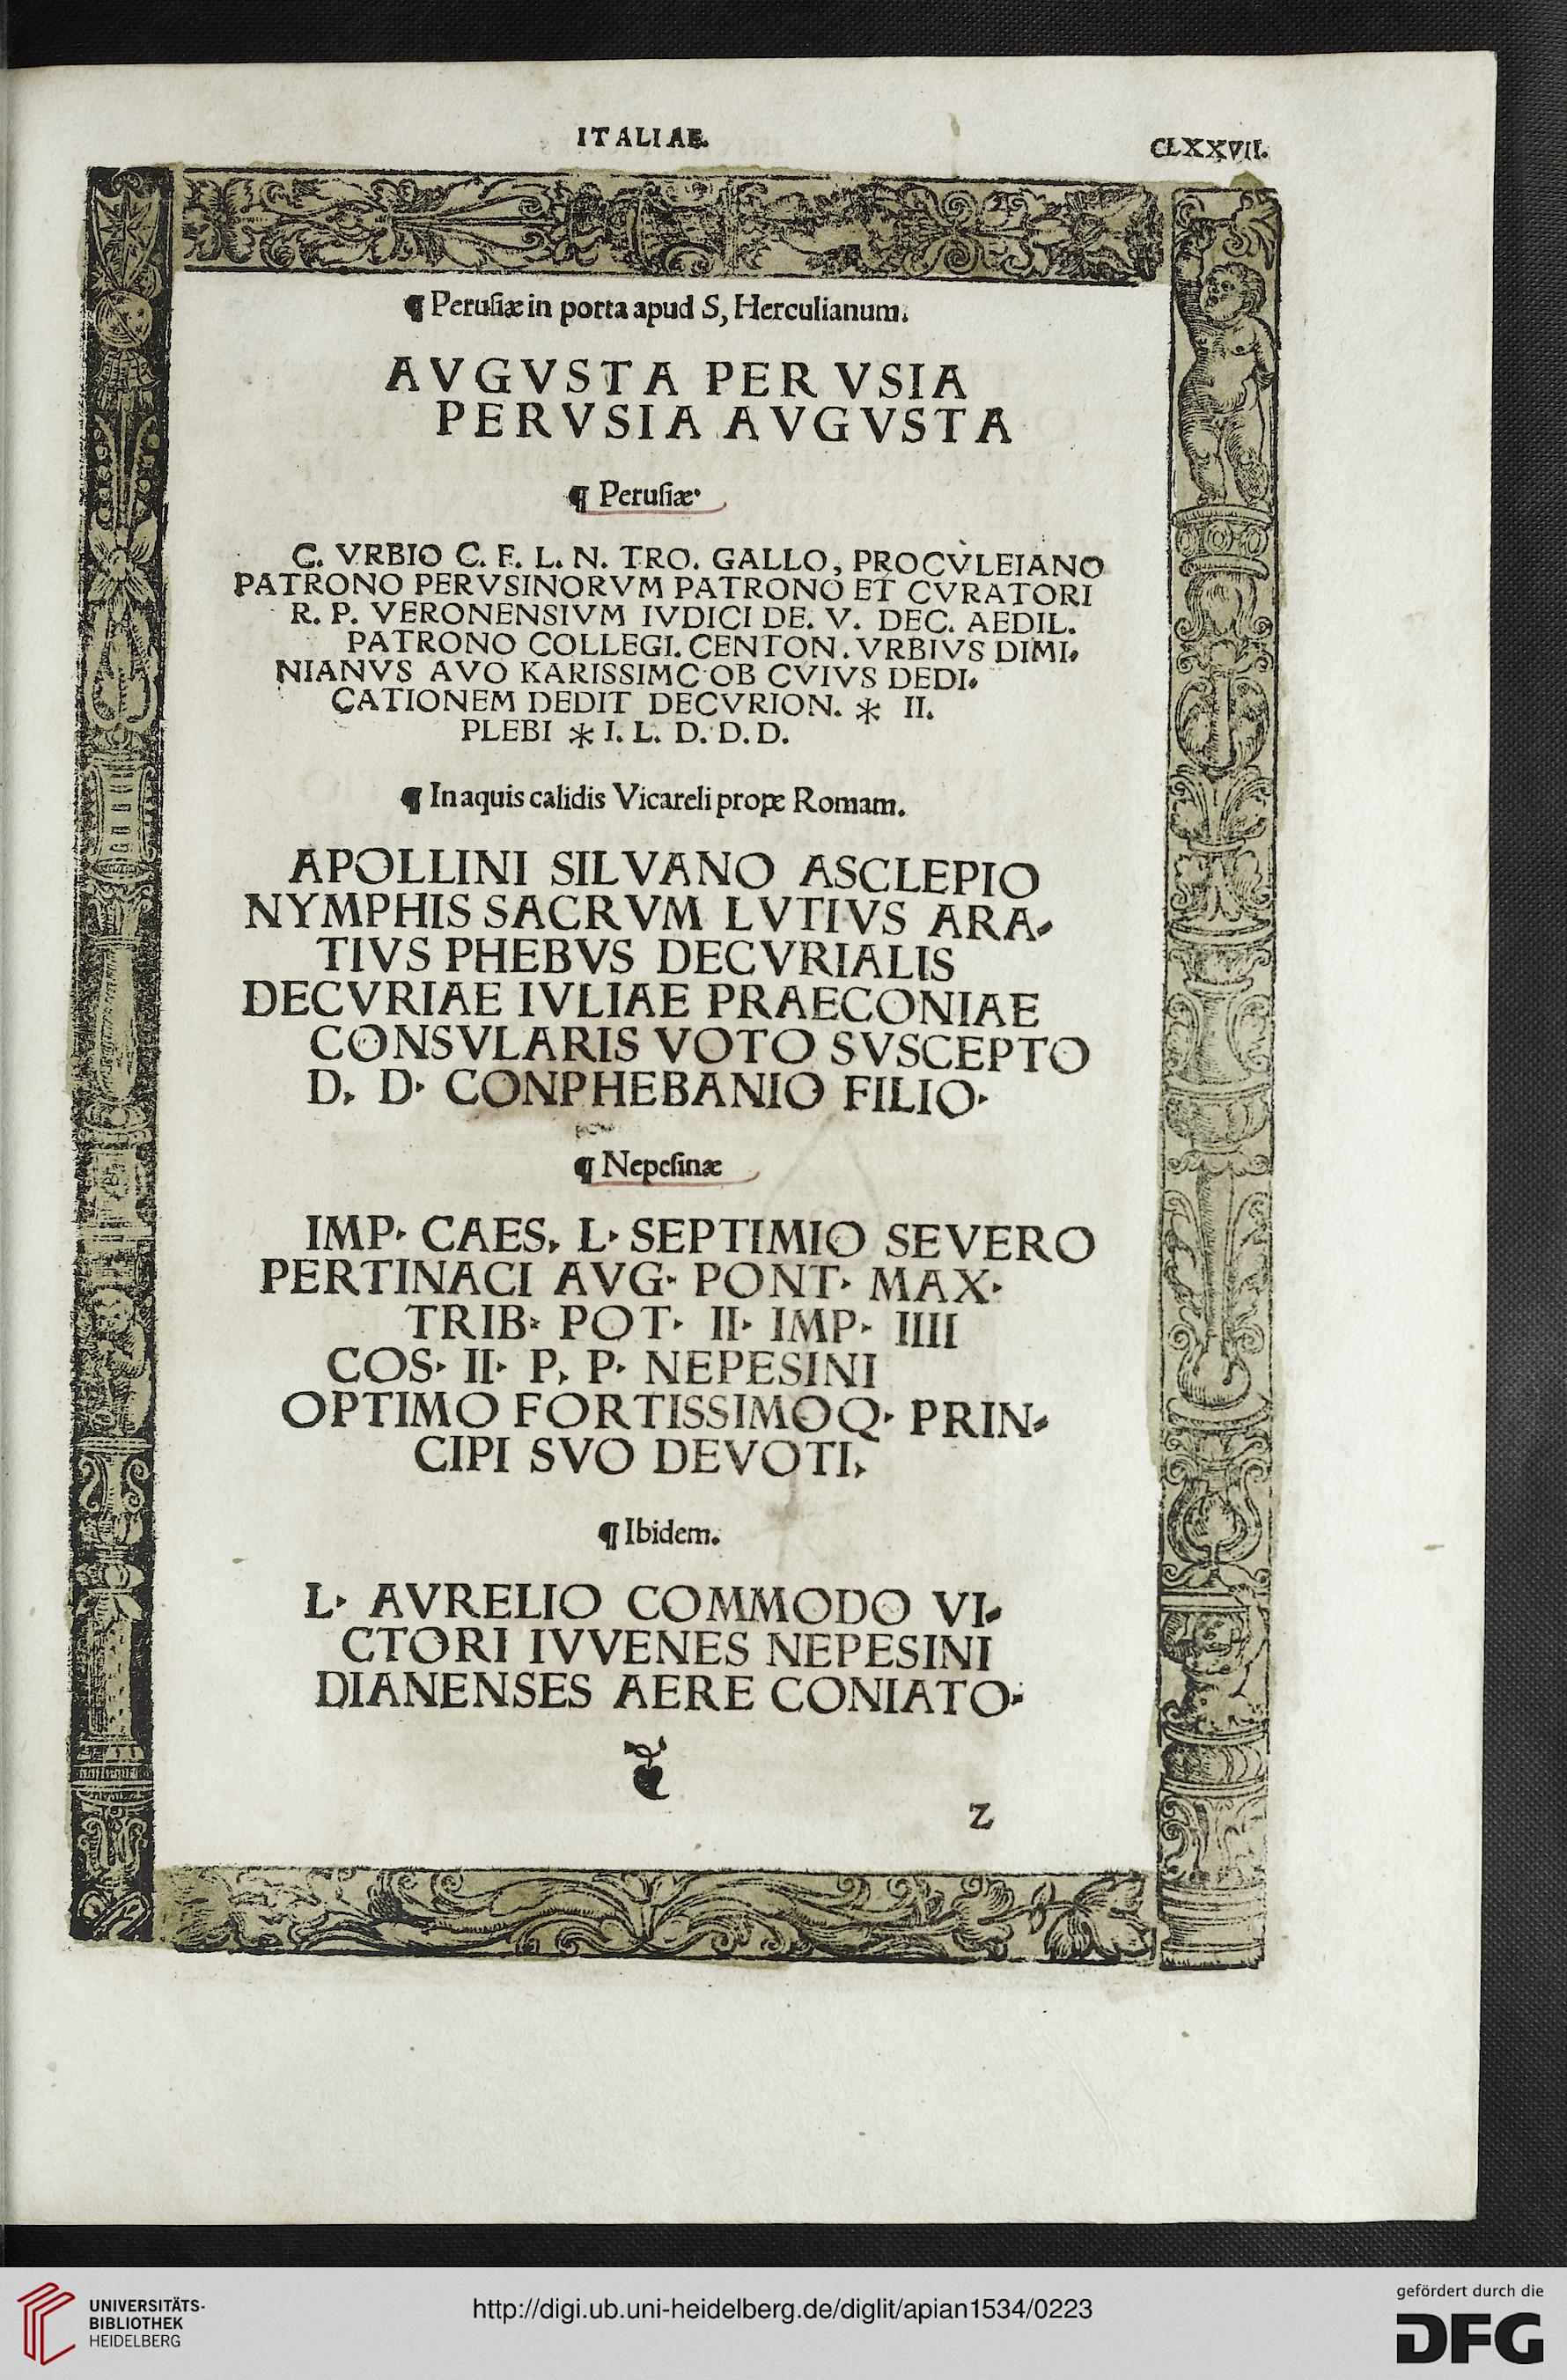 ITALIAE.
CLXXVII.
¶ Perusiæ in porta apud S, Herculianum.
AVGVSTA PERVSIA
PERVSIA AVGVSTA
¶ Perusiæ·
C. VRBIO C. F. L. N. TRO. GALLO, PROCVLEIANO
PATRONO PERVSINORVM PATRONO ET CVRATORI
R. P. VERONENSIVM IVDICI DE. V. DEC. AEDIL.
PATRONO COLLEGI. CENTON. VRBIVS DIMI-
NIANVS AVO KARISSIMC OB CVIVS DEDI-
CATIONEM DEDIT DECVRION. * II.
PLEBI * I. L. D. D. D.
¶ In aquis calidis Vicareli prope Romam.
APOLLINI SILVANO ASCLEPIO
NYMPHIS SACRVM LVTIVS ARA-
TIVS PHEBVS DECVRIALIS
DECVRIAE IVLIAE PRAECONIAE
CONSVLARIS VOTO SVSCEPTO
D, D· CONPHEBANIO FILIO·
¶ Nepesinæ
IMP· CAES, L· SEPTIMIO SEVERO
PERTINACI AVG· PONT· MAX·
TRIB· POT· II· IMP· IIII
COS· II· P, P· NEPESINI
OPTIMO FORTISSIMOQ· PRIN-
CIPI SVO DEVOTI,
¶ Ibidem.
L· AVRELIO COMMODO VI-
CTORI IVVENES NEPESINI
DIANENSES AERE CONIATO·
Z
UNIVERSITÄTS-
BIBLIOTHEK
HEIDELBERG
http://digi.ub.uni-heidelberg.de/diglit/apian1534/0223
gefördert durch die
DFG